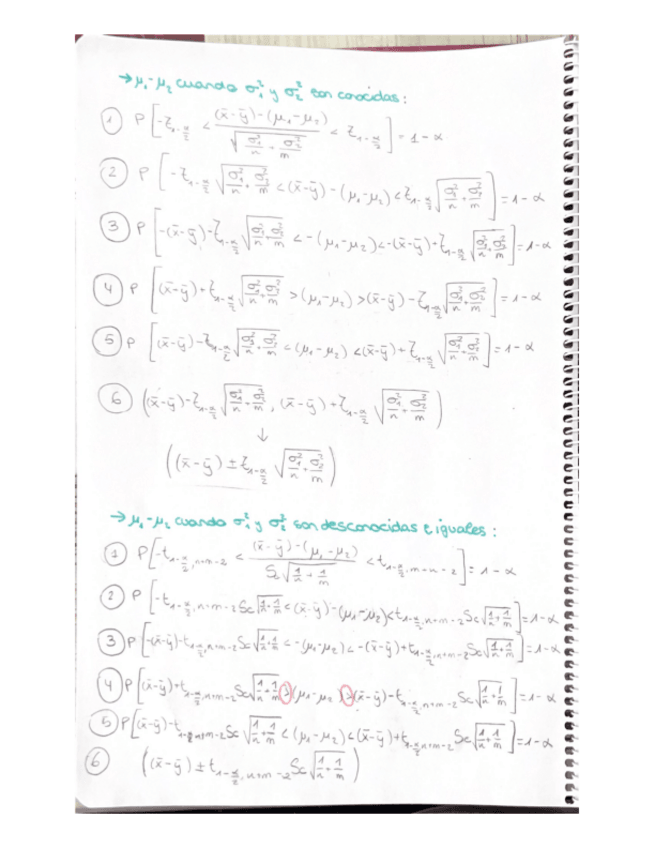 → μ₁-μ₂ cuando σ₁² y σ₂² son conocidas:
① P[-Z_{1-α/2} < ((x̄-ȳ)-(μ₁-μ₂))/√(σ₁²/n + σ₂²/m) < Z_{1-α/2}] = 1-α
② P[-Z_{1-α/2} √(σ₁²/n + σ₂²/m) < (x̄-ȳ)-(μ₁-μ₂) < Z_{1-α/2} √(σ₁²/n + σ₂²/m)] = 1-α
③ P[-(x̄-ȳ)-Z_{1-α/2} √(σ₁²/n + σ₂²/m) < -(μ₁-μ₂) < -(x̄-ȳ)+Z_{1-α/2} √(σ₁²/n + σ₂²/m)] = 1-α
④ P[(x̄-ȳ)+Z_{1-α/2} √(σ₁²/n + σ₂²/m) > (μ₁-μ₂) > (x̄-ȳ)-Z_{1-α/2} √(σ₁²/n + σ₂²/m)] = 1-α
⑤ P[(x̄-ȳ)-Z_{1-α/2} √(σ₁²/n + σ₂²/m) < (μ₁-μ₂) < (x̄-ȳ)+Z_{1-α/2} √(σ₁²/n + σ₂²/m)] = 1-α
⑥ ((x̄-ȳ)-Z_{1-α/2} √(σ₁²/n + σ₂²/m), (x̄-ȳ)+Z_{1-α/2} √(σ₁²/n + σ₂²/m))
↓
((x̄-ȳ) ± Z_{1-α/2} √(σ₁²/n + σ₂²/m))
→ μ₁-μ₂ cuando σ₁² y σ₂² son desconocidas e iguales:
① P[-t_{1-α/2, n+m-2} < ((x̄-ȳ)-(μ₁-μ₂))/(Sc√(1/n + 1/m)) < t_{1-α/2, m-n-2}] = 1-α
② P[-t_{1-α/2, n+m-2} Sc√(1/n + 1/m) < (x̄-ȳ)-(μ₁-μ₂) < t_{1-α/2, n+m-2} Sc√(1/n + 1/m)] = 1-α
③ P[-(x̄-ȳ)-t_{1-α/2, n+m-2} Sc√(1/n + 1/m) < -(μ₁-μ₂) < -(x̄-ȳ)+t_{1-α/2, n+m-2} Sc√(1/n + 1/m)] = 1-α
④ P[(x̄-ȳ)+t_{1-α/2, n+m-2} Sc√(1/n + 1/m) > (μ₁-μ₂) > (x̄-ȳ)-t_{1-α/2, n+m-2} Sc√(1/n + 1/m)] = 1-α
⑤ P[(x̄-ȳ)-t_{1-α/2, n+m-2} Sc√(1/n + 1/m) < (μ₁-μ₂) < (x̄-ȳ)+t_{1-α/2, n+m-2} Sc√(1/n + 1/m)] = 1-α
⑥ ((x̄-ȳ) ± t_{1-α/2, n+m-2} Sc√(1/n + 1/m))